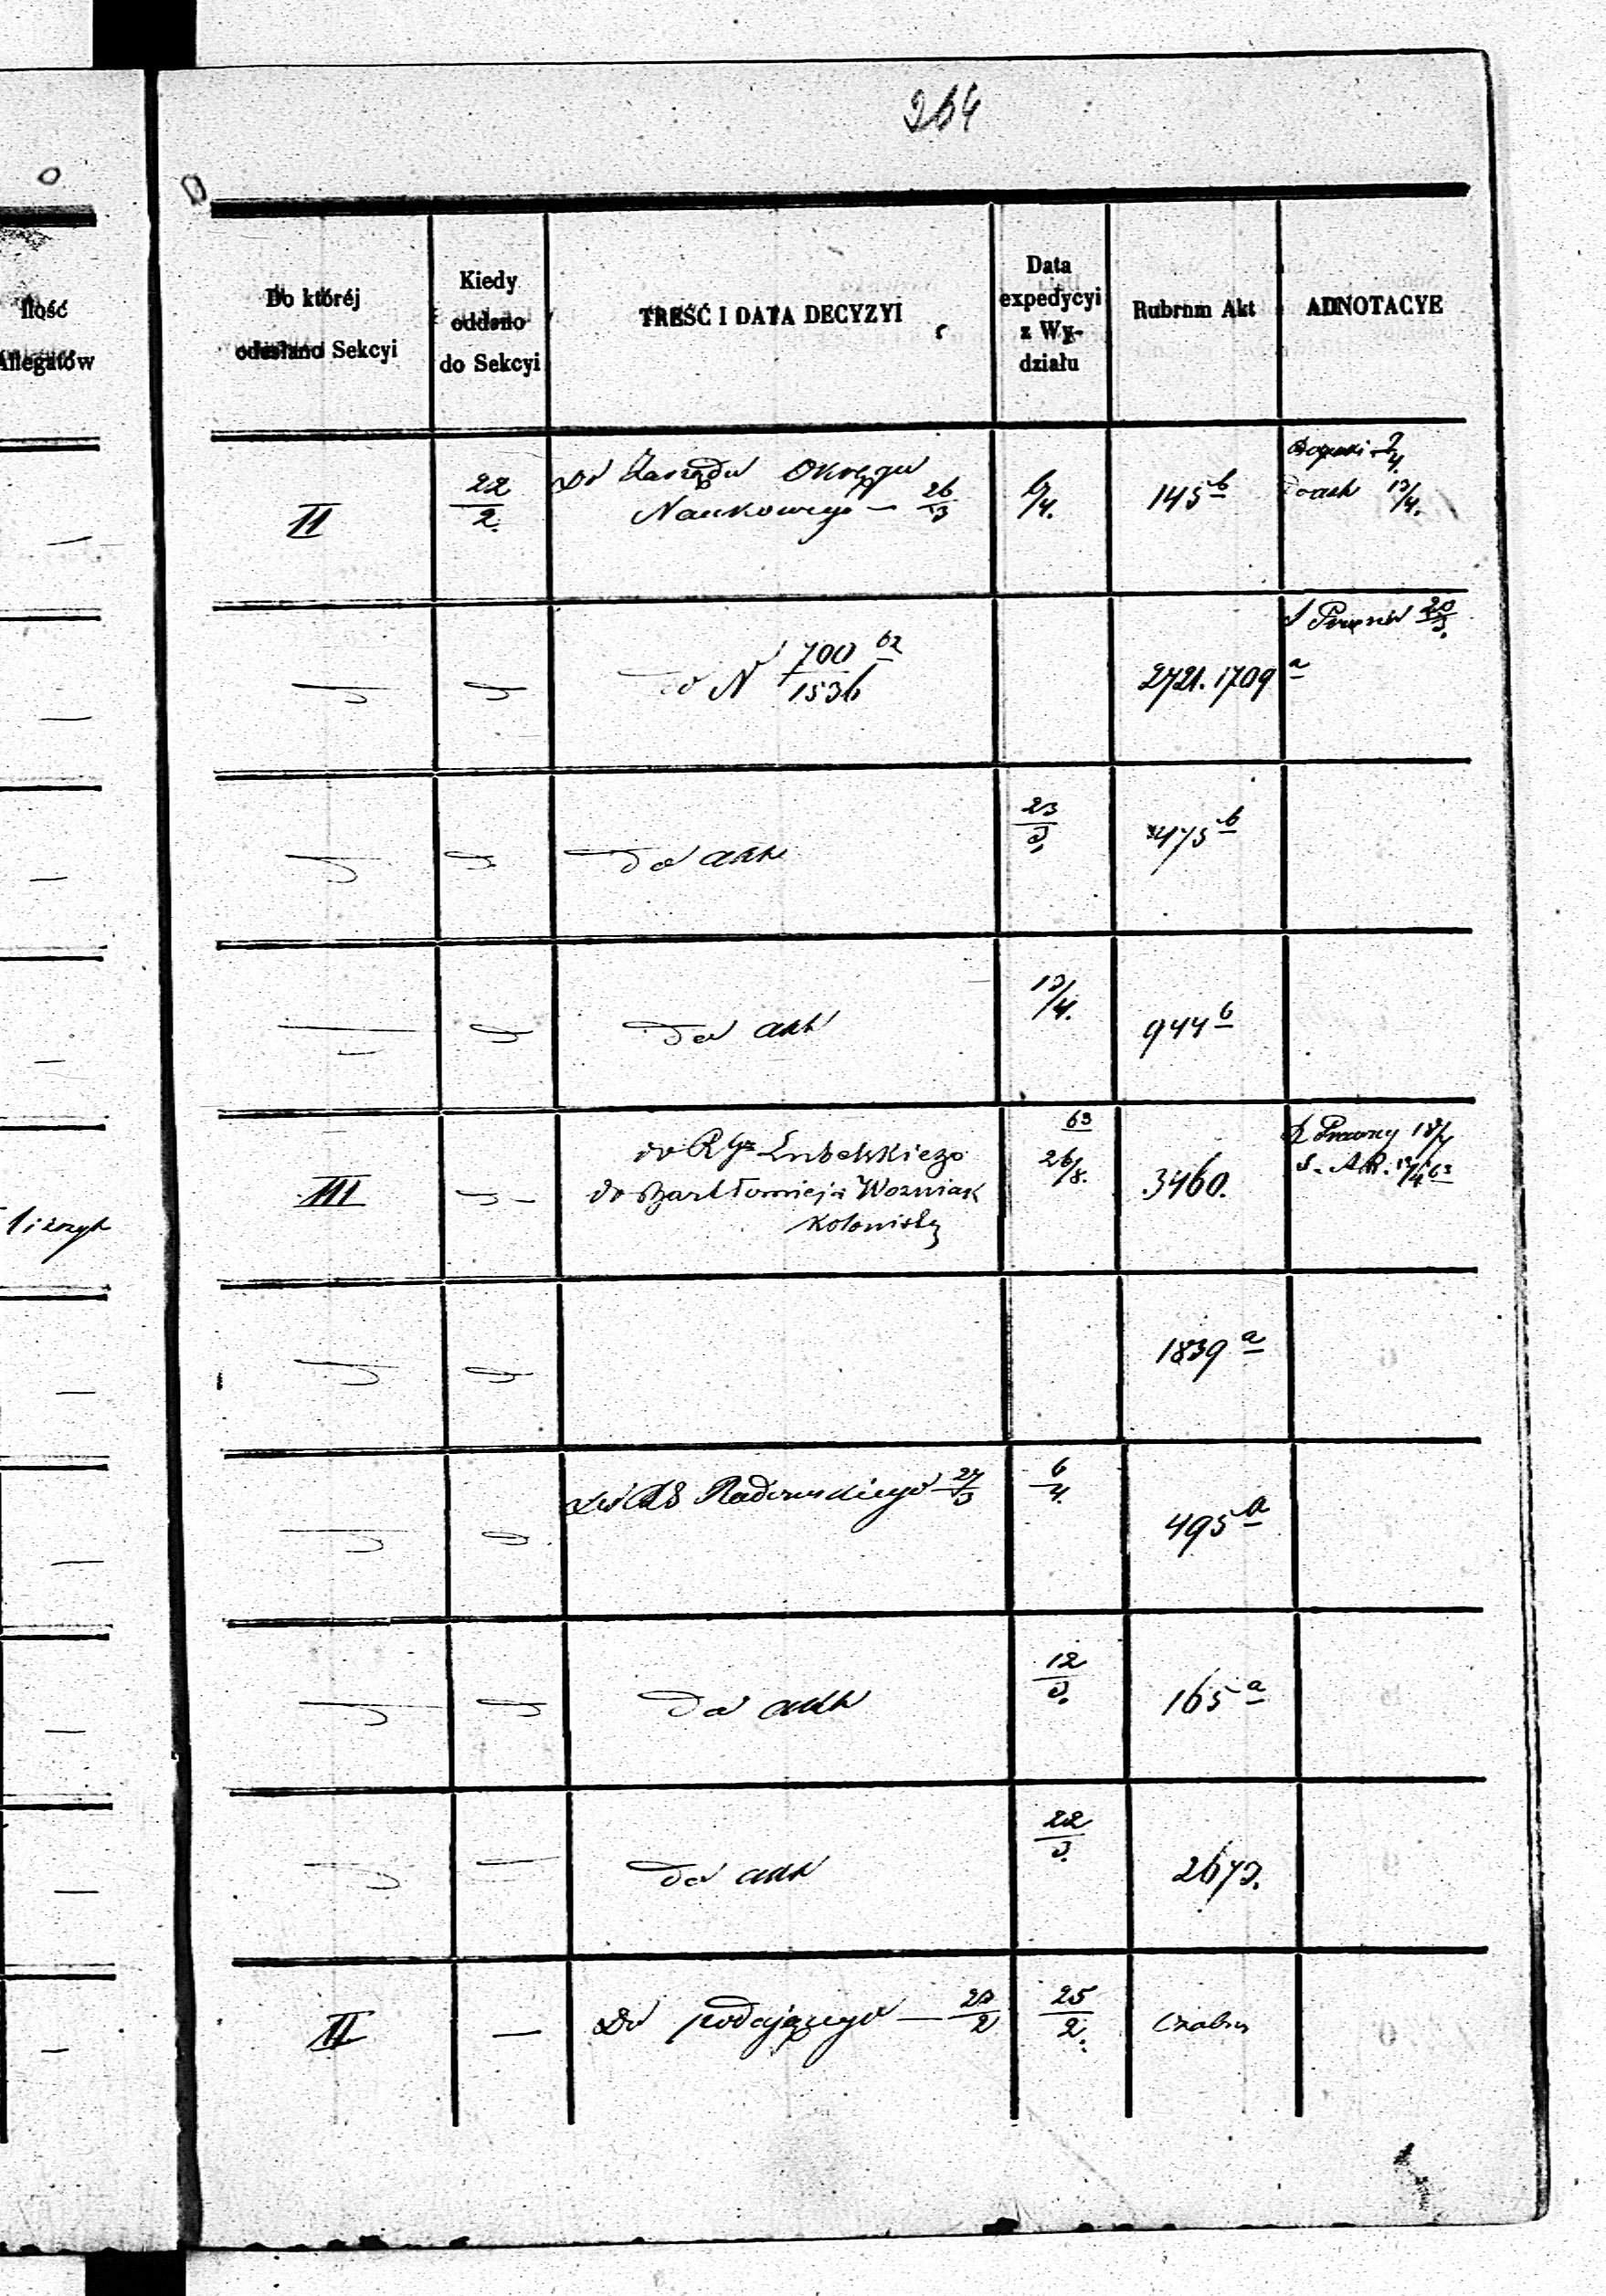 264
Ilość
Allegatów
Do któréj
odesłano Sekcyi
Kiedy
oddano
do Sekcyi
TREŚĆ I DATA DECYZYI
Data
expedycyi
z Wy-
działu
Rubrum Akt
ADNOTACYE
II
22/2.
Do Zarządu Okręgu
Naukowego — 26/3
6/4.
145 b
13/4.
do N 700/1536 62
2721.1709 a
20/3.
do akt
23/3.
475 b
do akt
13/4.
944 b
III
do RGo Lubelskiego
do Bartłomieja Wozniak
Kolonisty
63
26/8.
3460.
1839 a
Do RG Radomskiego 27/3
6/4.
495 a
do akt
12/3.
165 a
do akt
22/3.
2673.
II
—
Do podającego — 23/2
25/2.